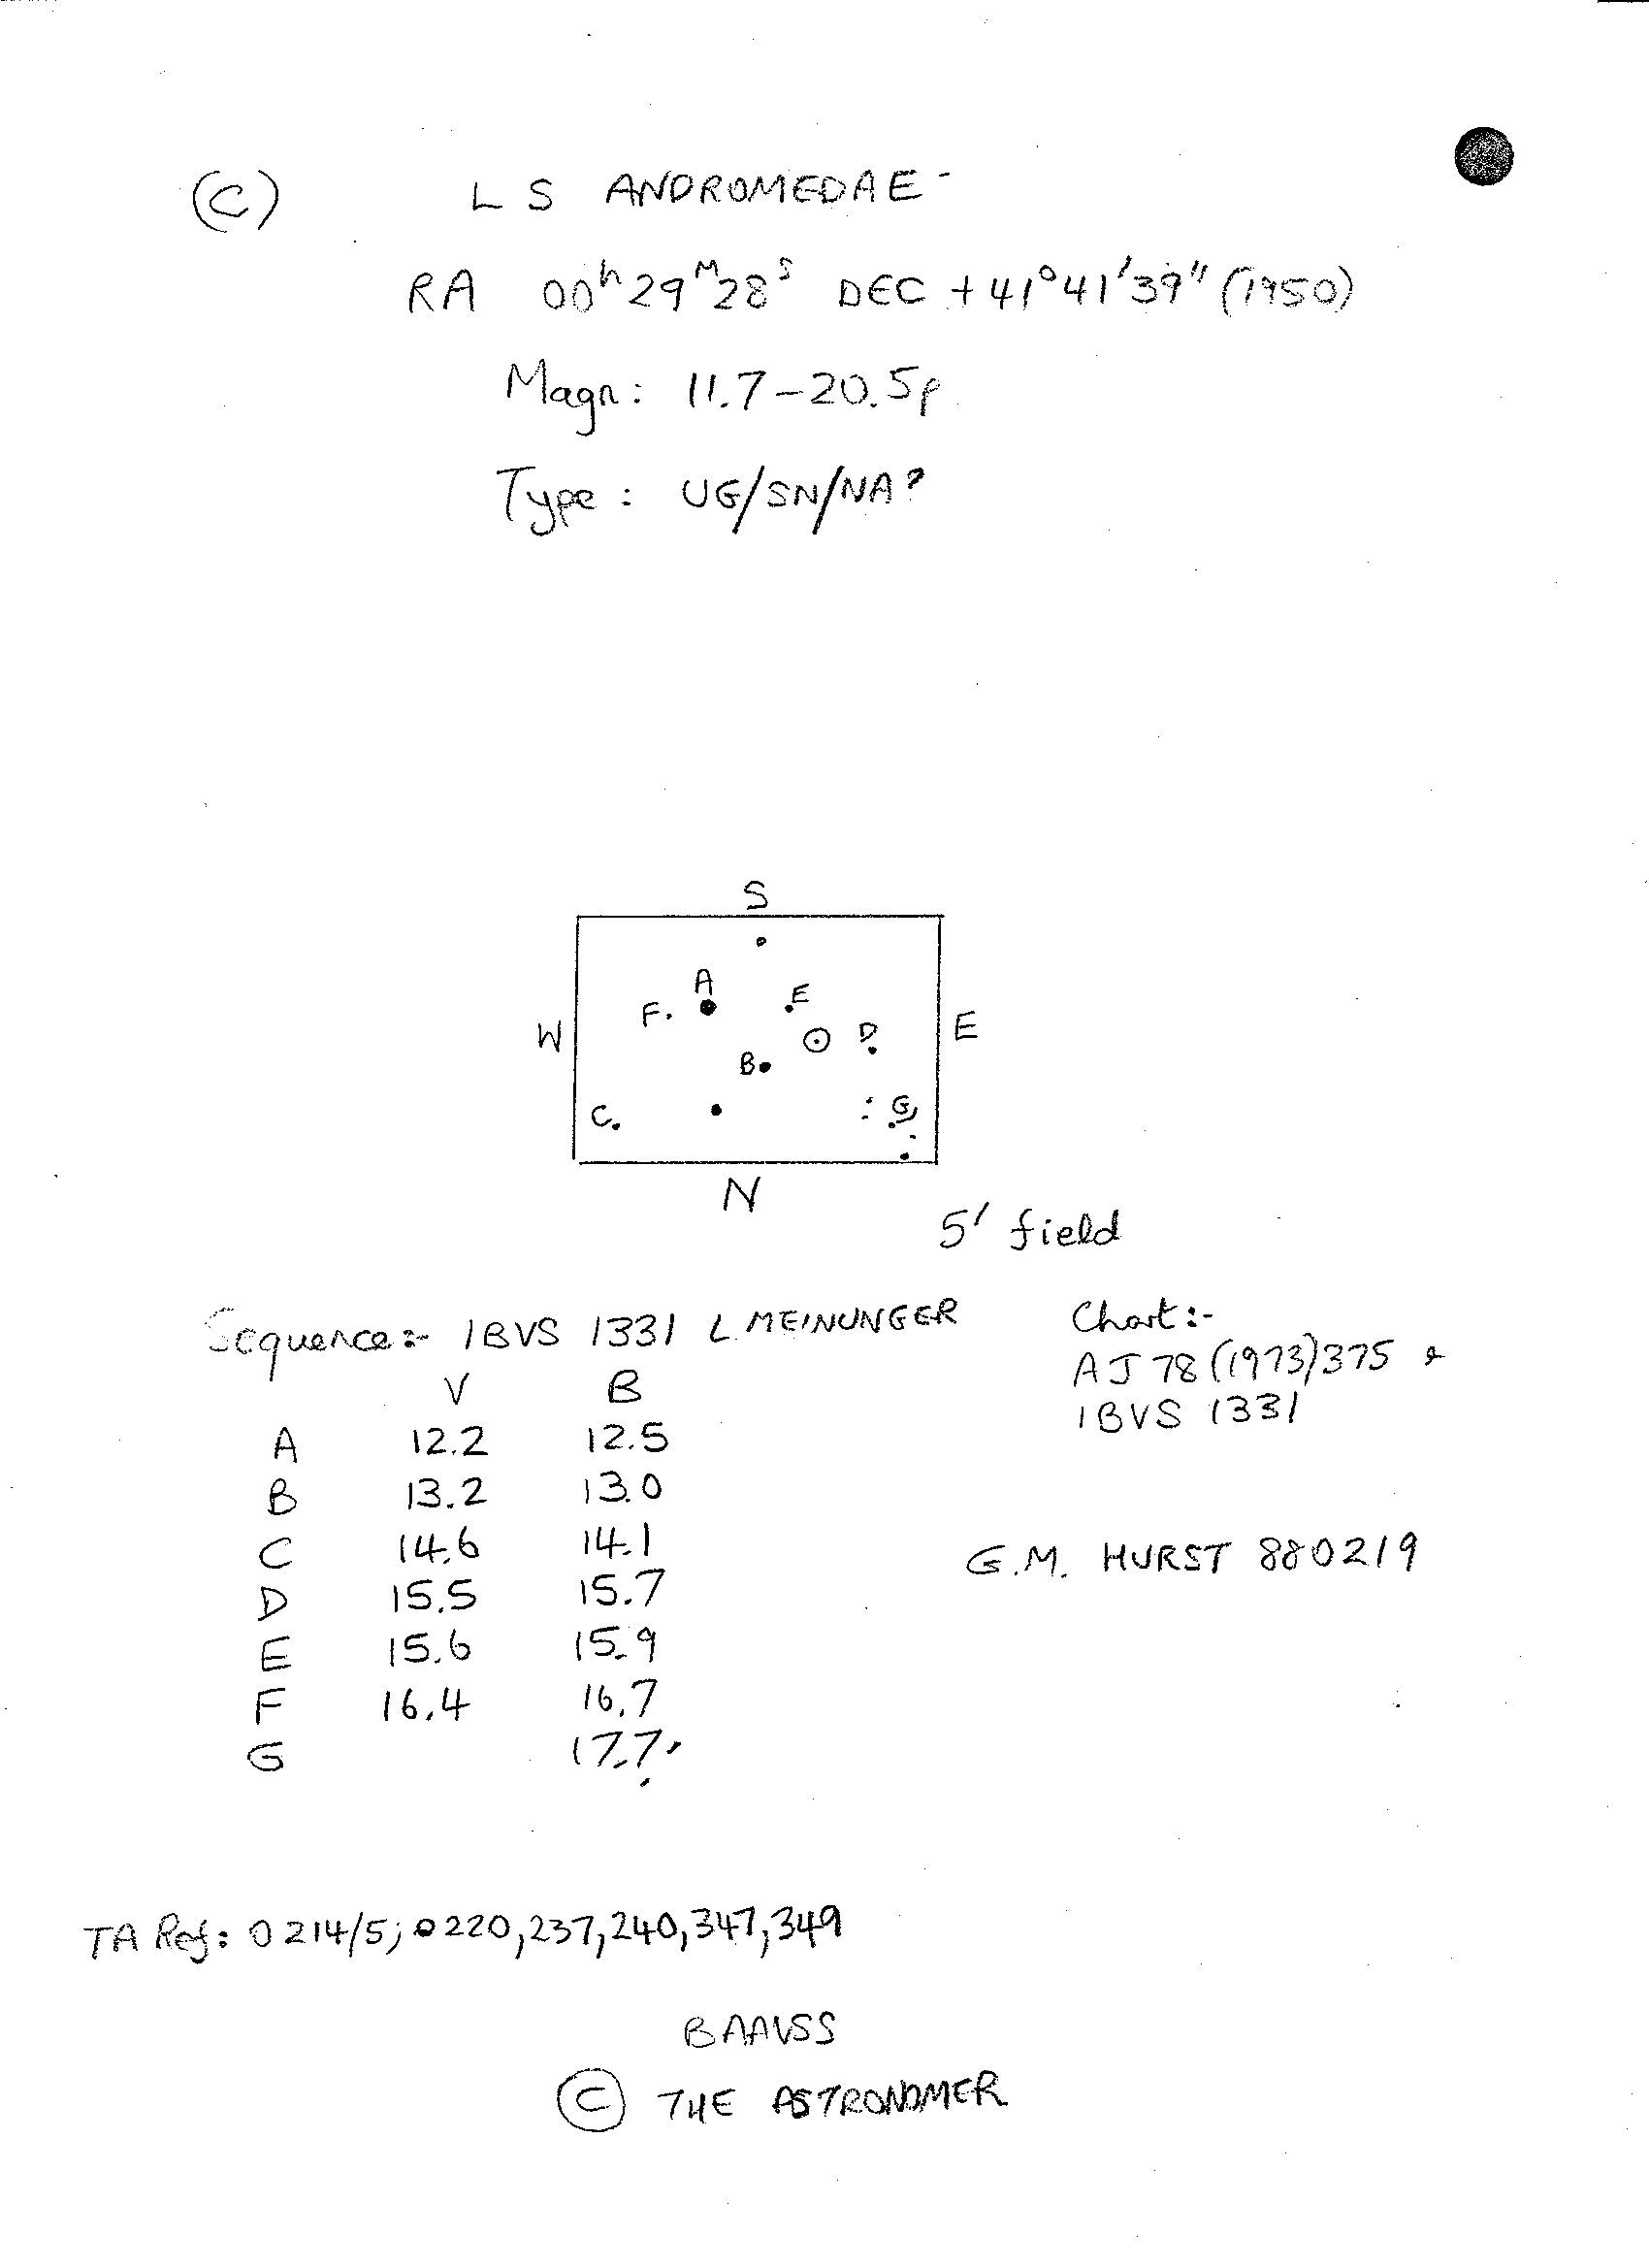 (C) LS ANDROMEDAE-
RA 00h 29M 28S DEC +41°41'39" (1950)
Magn: 11.7-20.5p
Type: UG/SN/NA?
S
A
F. E
W D E
B
C. G
N
5' field
Sequence:- IBVS 1331 L MEINUNGER
V B
A 12.2 12.5
B 13.2 13.0
C 14.6 14.1
D 15.5 15.7
E 15.6 15.9
F 16.4 16.7
G 17.7
Chart:-
AJ 78 (1973) 375 &
IBVS 1331
G.M. HURST 880219
TA Ref: 0214/5; 0220,237,240,347,349
BAAVSS
© THE ASTRONOMER